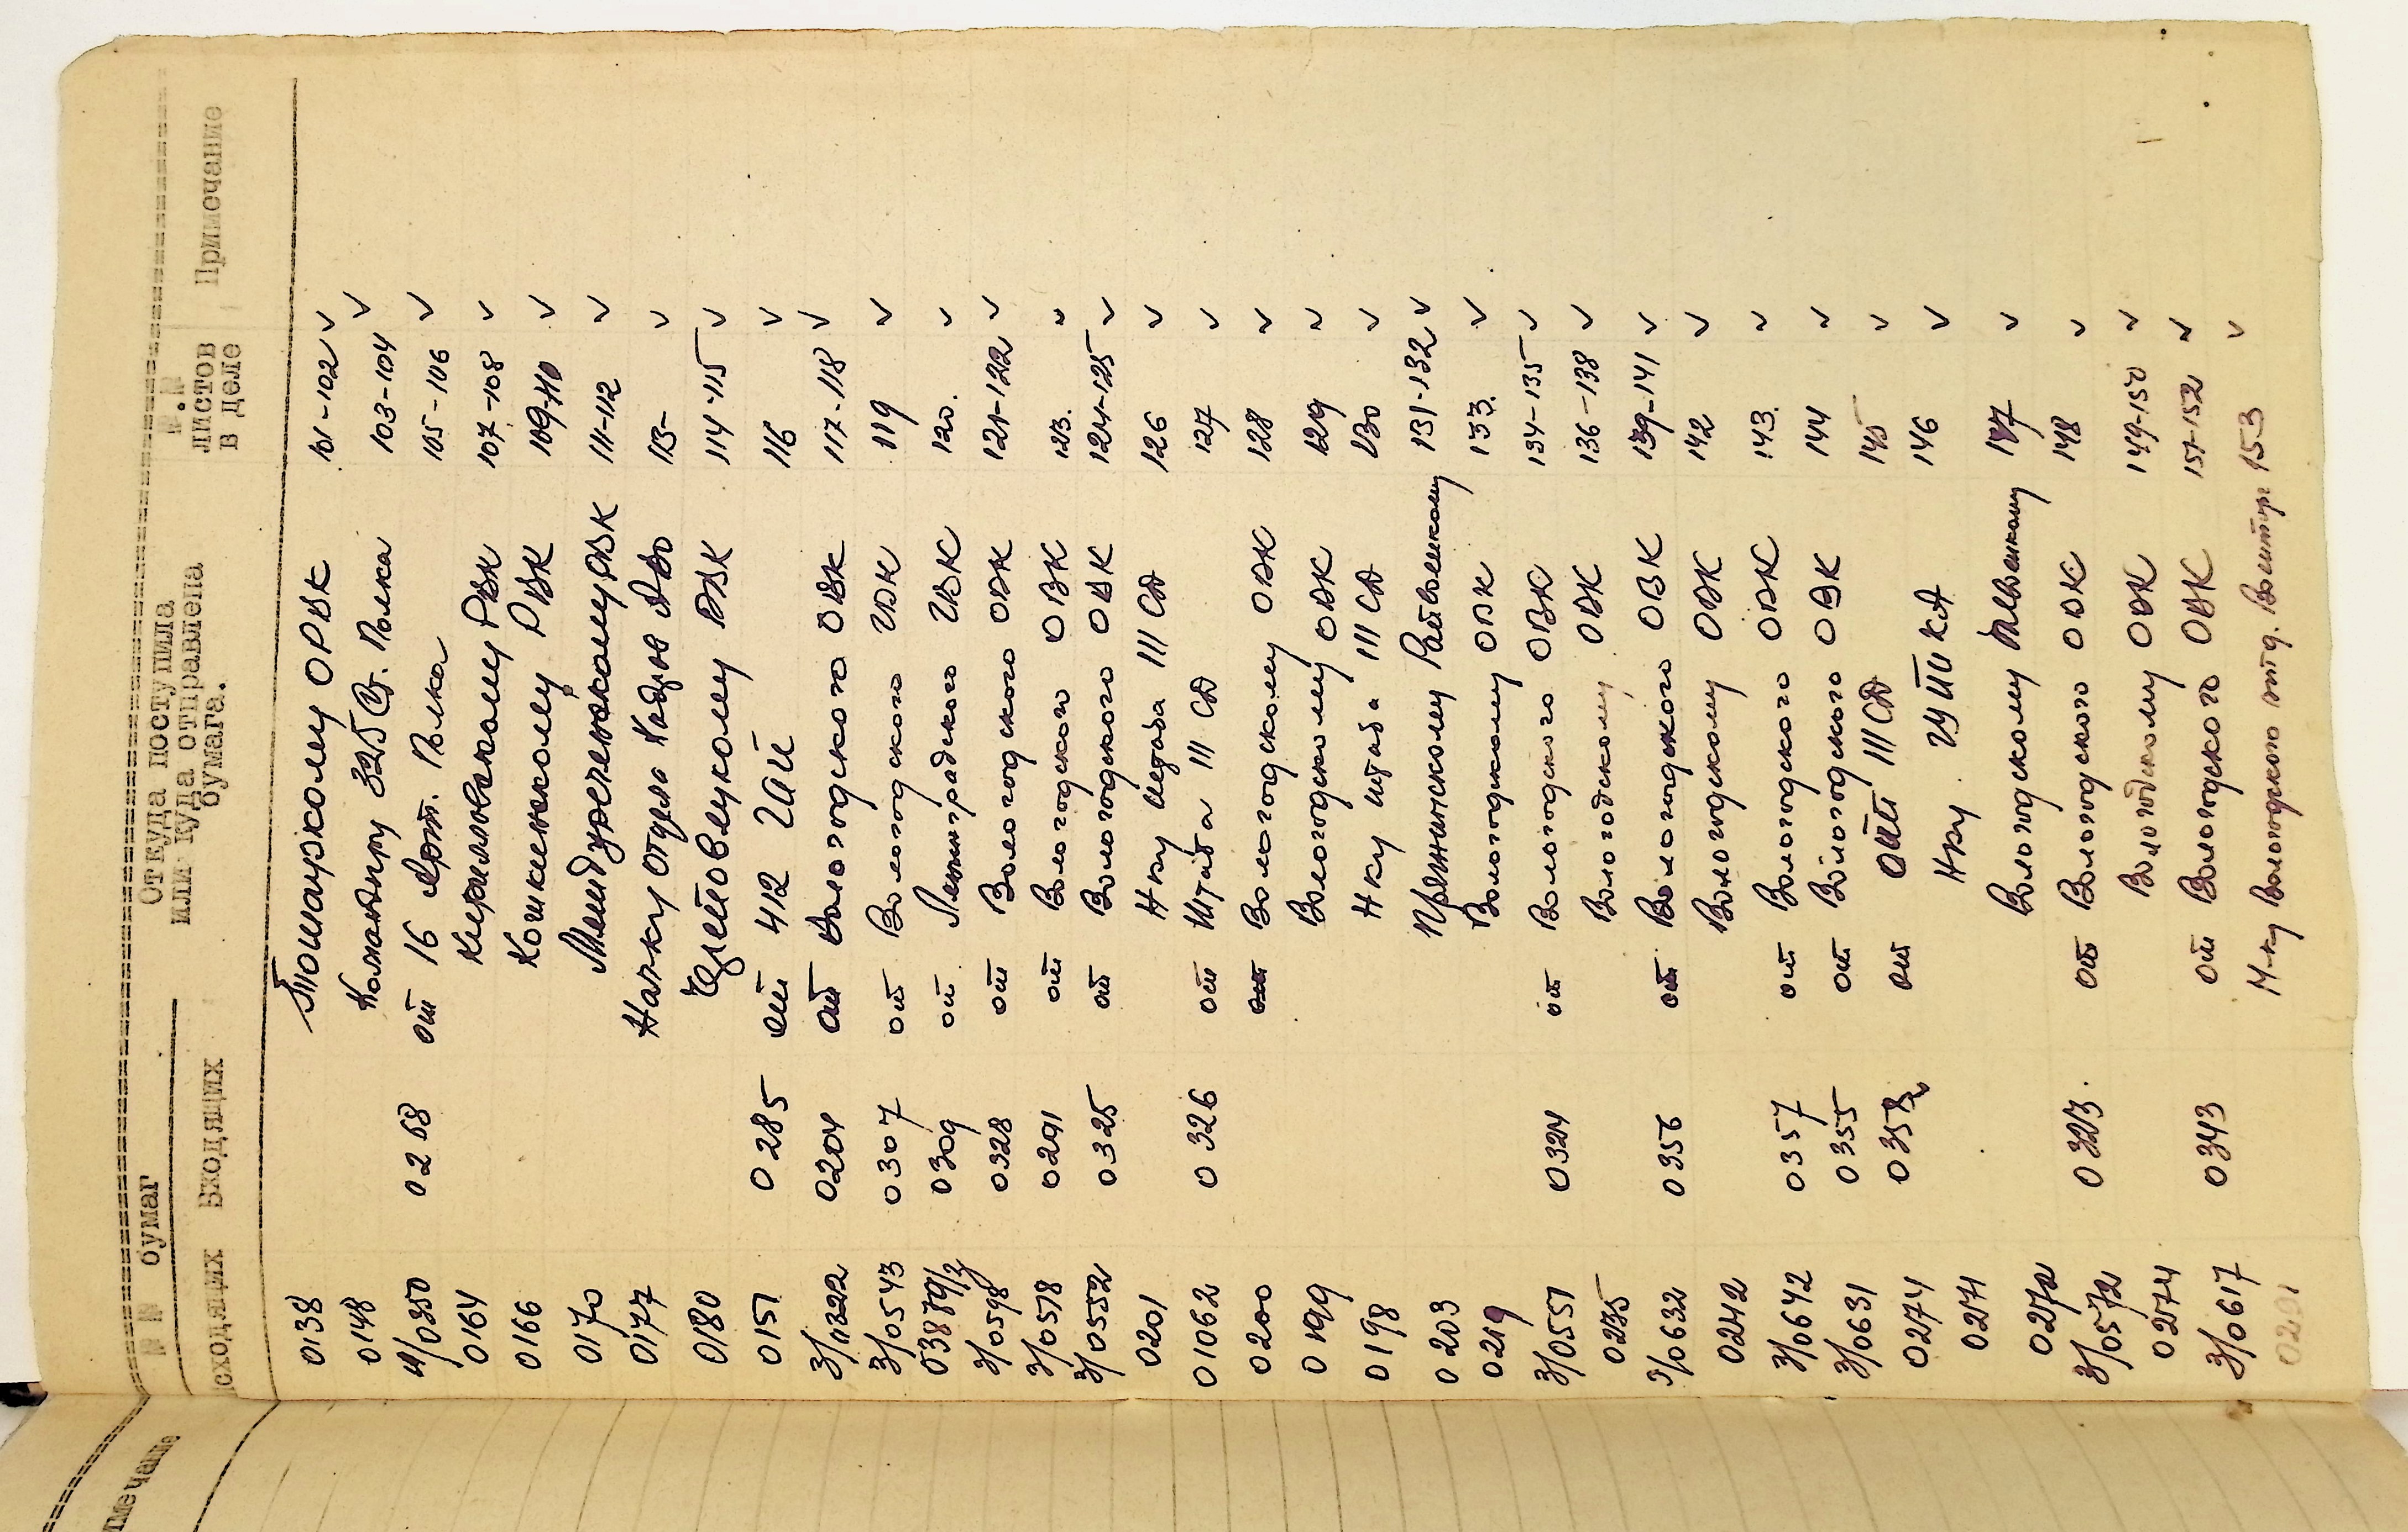 №№ бумаг
Откуда поступила или куда отправлена бумага.
№.№ листов в деле
Примечание
сходящих Входящих
0138 Тотьмускому ОРВК 101-102 v
0148 Командиру 325 Ст. Полка 103-104 v
0350 0268 от 16 Арт. Полка 105-106 v
0164 Кирилловскому РВК 107-108 v
0166 Кошкинскому РВК 109-110 v
0170 РВК 111-112 v
0177 Нач-ку отдела Кадров ЛВО 113- v
0180 РВК 114-115 v
0151 0285 от 412 ГАП 116 v
3/0322 0204 от Вологодского ОВК 117-118 v
3/0543 0307 от Вологодского ОВК 119 v
0309 от Ленинградского ГВК 120. v
3/0598 0328 от Вологодского ОВК 121-122 v
3/0578 0291 от Вологодского ОВК 123. v
3/0552 0325 от Вологодского ОВК 124-125 v
0201 Н-ку штаба 111 СД 126 v
01062 0326 от Штаба 111 СД 127 v
0200 Вологодскому ОВК 128 v
0199 Вологодскому ОВК 129 v
0198 Н-ку штаба 111 СД 130 v
0203 Райвоенкому 131-132 v
0219 Вологодскому ОВК 133. v
3/0551 0324 от Вологодского ОВК 134-135 v
0235 Вологодскому ОВК 136-138 v
3/0632 0356 от Вологодского ОВК 139-141 v
0242 Вологодскому ОВК 142 v
3/0642 0357 от Вологодского ОВК 143. v
3/0631 0355 от Вологодского ОВК 144 v
0274 от 111 СД 145 v
0271 Н-ку КА 146 v
0272 Вологодскому 147 v
3/0572 0323. от Вологодского ОВК 148 v
0274 Вологодскому ОВК 149-150 v
3/0617 0343 от Вологодского ОВК 151-152 v
Н-ку Вологодского отд. 153 v
мечание